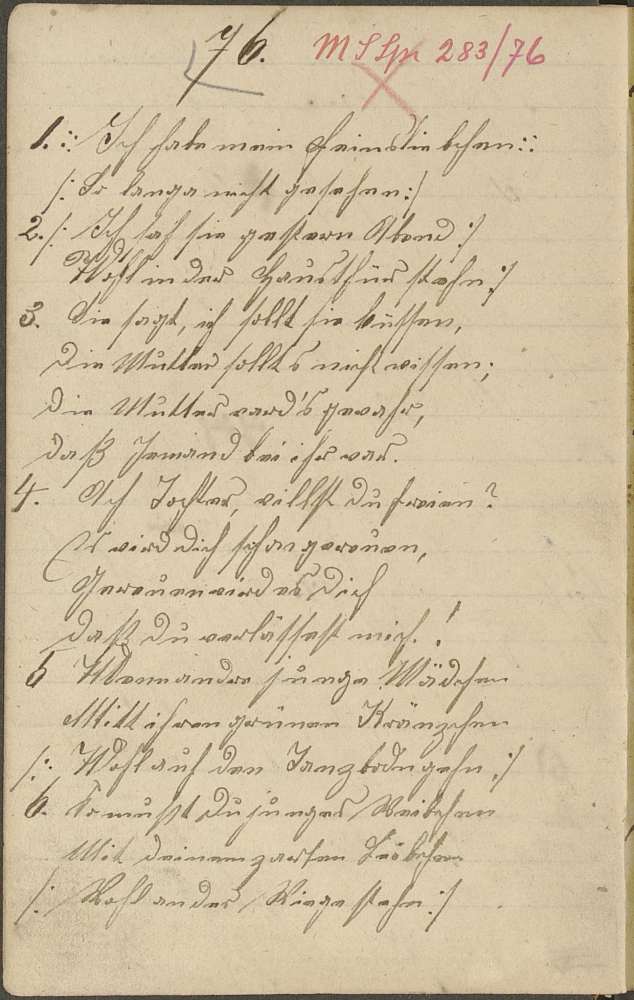 76. M S Lpr 283/76
1. :: Ich habe mein Feinsliebchen ::
/: So lange nicht gesehen :/
2. /: Ich sah sie gestern Abend :/
Wohl in der Hausthür stehn :/
3. Sie sagt, ich sollt sie küssen,
Die Mutter sollt's nicht wissen;
Die Mutter ward's gewahr,
Daß Jemand bei ihr war.
4. Ach Tochter, willst du freien?
Es wird dich schon gereuen,
Gereuen wird es Dich
Daß Du verlässest mich.!
5 Wenn andre junge Mädchen
Mitt ihren grünen Kränzchen
/: Wohl auf den Tanzbodn gehn :/
6. So mußt Du junges Weibchen
Mit Deinem zarten Leibchen
/: Wohl an der Wiege stehn :/